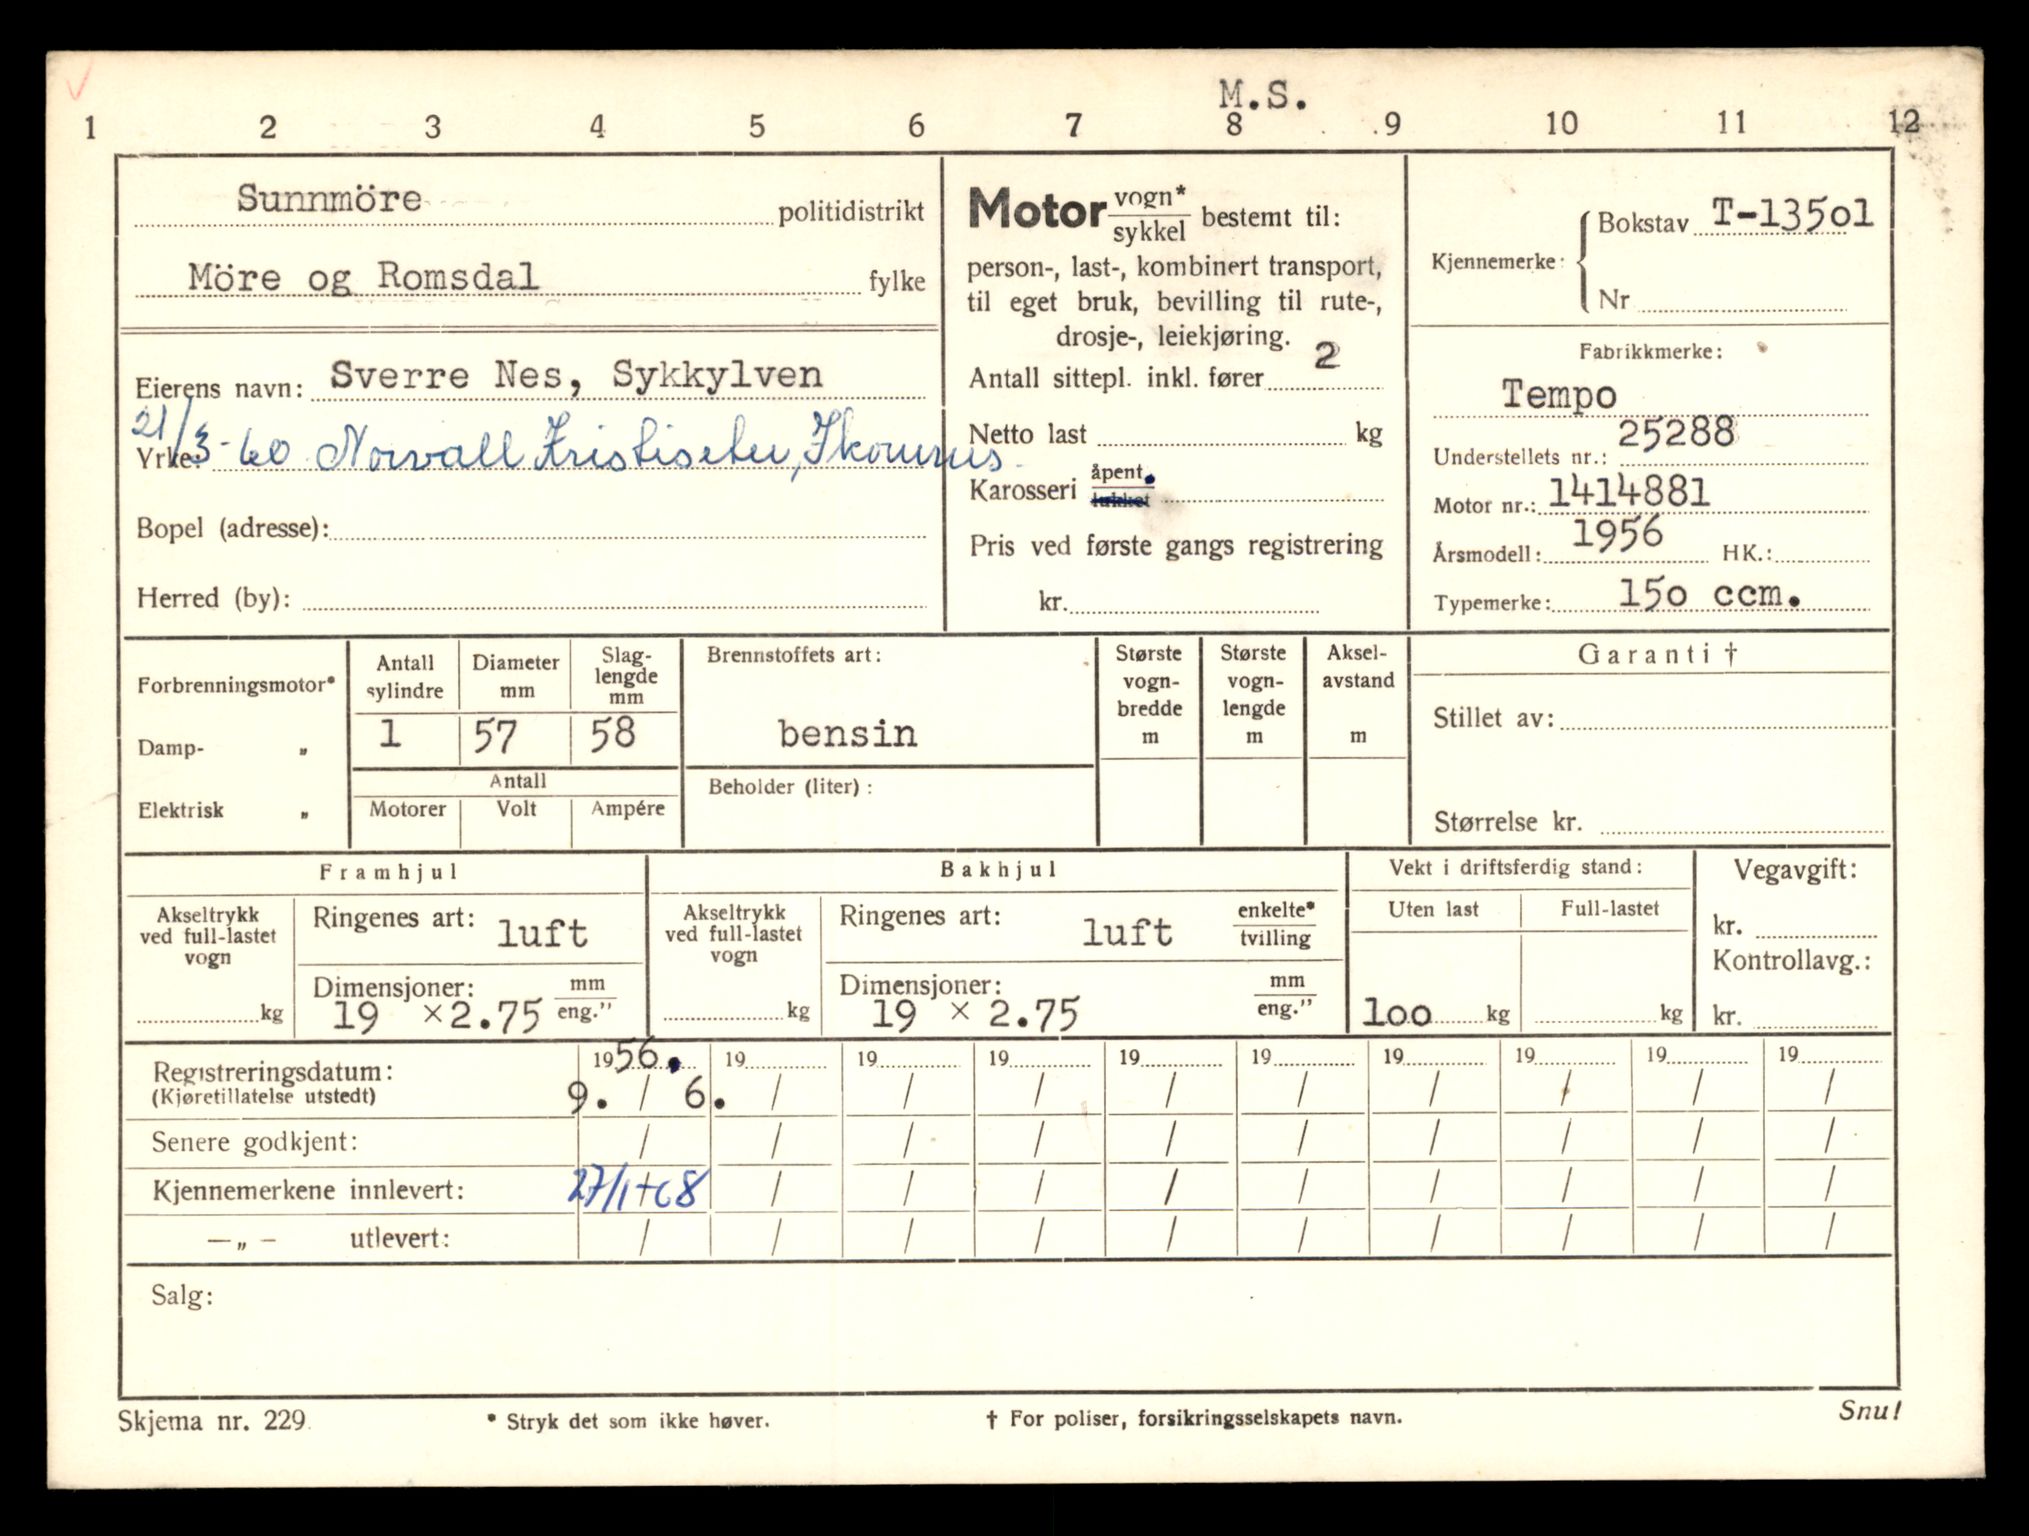 M.S.
1 2 3 4 5 6 7 8 9 10 11 12
Sunnmöre politidistrikt
Möre og Romsdal fylke
Eierens navn: Sverre Nes, Sykkylven
21/3-60 Norvall Kristiseter,
Yrke:
Bopel (adresse):
Herred (by):
Motor vogn* / sykkel bestemt til:
person-, last-, kombinert transport,
til eget bruk, bevilling til rute-,
drosje-, leiekjøring.
Antall sittepl. inkl. fører 2
Netto last kg
Karosseri åpent. / lukket
Pris ved første gangs registrering
kr.
Kjennemerke: Bokstav T-135o1
Nr
Fabrikkmerke:
Tempo
Understellets nr.: 25288
Motor nr.: 1414881
Årsmodell: 1956 HK.:
Typemerke: 15o ccm.
Forbrenningsmotor*
Damp- „
Elektrisk „
Antall sylindre
1
Diameter mm
57
Slag-
lengde
mm
58
Antall
Motorer Volt Ampére
Brennstoffets art:
bensin
Beholder (liter):
Største
vogn-
bredde
m
Største
vogn-
lengde
m
Aksel-
avstand
m
Garanti †
Stillet av:
Størrelse kr.
Framhjul
Akseltrykk
ved full-lastet
vogn
kg
Ringenes art: luft
Dimensjoner: mm / eng.”
19 × 2.75
Bakhjul
Akseltrykk
ved full-lastet
vogn
kg
Ringenes art: luft enkelte* / tvilling
Dimensjoner: mm / eng.”
19 × 2.75
Vekt i driftsferdig stand:
Uten last Full-lastet
1oo kg kg
Vegavgift:
kr.
Kontrollavg.:
kr.
Registreringsdatum: 1956. 19 19 19 19 19 19 19 19 19
(Kjøretillatelse utstedt) 9. / 6. / / / / / / / / /
Senere godkjent: / / / / / / / / / /
Kjennemerkene innlevert: 27/1-68 / / / / / / / / /
—„— utlevert: / / / / / / / / / /
Salg:
Skjema nr. 229. * Stryk det som ikke høver. † For poliser, forsikringsselskapets navn. Snu!